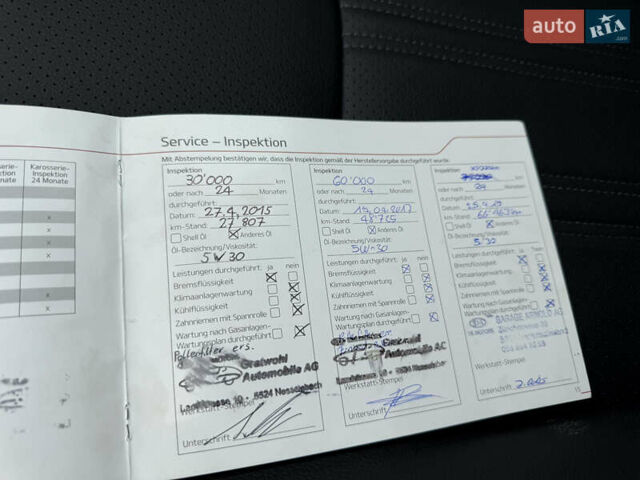 auto RIA
.com
Karosserie-
Inspektion
24 Monate
Service – Inspektion
Mit Abstempelung bestätigen wir, dass die Inspektion gemäß der Herstellervorgabe durchgeführt wurde.
Inspektion
30'000 km
oder nach 24 Monaten
durchgeführt:
Datum: 27.4.2015
km-Stand: 27 807
Shell Öl Anderes Öl
Öl-Bezeichnung/Viskosität:
5W30
Leistungen durchgeführt: ja nein
Bremsflüssigkeit
Klimaanlagenwartung
Kühlflüssigkeit
Zahnriemen mit Spannrolle
Wartung nach Gasanlagen-
Wartungsplan durchgeführt
Pollenfilter ers.
Gratwohl
Automobile AG
5524 Nesselnbach
Werkstatt-Stempel
Unterschrift
Inspektion
60'000 km
oder nach 24 Monaten
durchgeführt:
Datum:
km-Stand:
Shell Öl Anderes Öl
Öl-Bezeichnung/Viskosität:
5W-30
Leistungen durchgeführt: ja nein
Bremsflüssigkeit
Klimaanlagenwartung
Kühlflüssigkeit
Zahnriemen mit Spannrolle
Wartung nach Gasanlagen-
Wartungsplan durchgeführt
Automobile AG
5524 Nesselnbach
Werkstatt-Stempel
Unterschrift
Inspektion
km
oder nach 24 Monaten
durchgeführt:
Datum:
km-Stand:
Shell Öl Anderes Öl
Öl-Bezeichnung/Viskosität:
5 30
Leistungen durchgeführt: ja nein
Bremsflüssigkeit
Klimaanlagenwartung
Kühlflüssigkeit
Zahnriemen mit Spannrolle
Wartung nach Gasanlagen-
Wartungsplan durchgeführt
GARAGE ARNOLD AG
Werkstatt-Stempel
Unterschrift
15